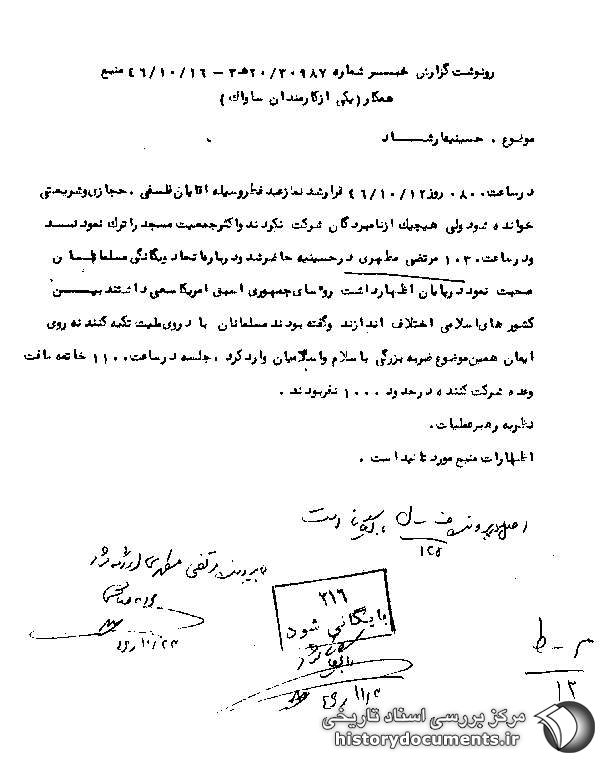 رونوشت گزارش خبر شماره ۳۰۹۸۷/۲۰ه‍۳ – ۴۶/۱۰/۱۶ منبع
همکار (یکی ازکارمندان ساواک)
موضوع . حسینیه ارشاد
درساعت ۰۸۰۰ روز ۴۶/۱۰/۱۲ قرارشد نمازعید فطروسیله آقایان فلسفی ، حجازی وشریعتی
خوانده شود ولی هیچیک ازنامبردگان شرکت نکردند واکثرجمعیت مسجد را ترك نمودنـــد
ودرساعت ۱۰۳۰ مرتضی مطهری درحسینیه حاضرشد ودرباره اتحاد ویگانگی مسلمانان
صحبت نمود درپایان اظهارداشت روسای جمهوری اسبق امریکا سعی داشتند بیـــن
کشورهای اسلامی اختلاف اندازند وگفته بودند مسلمانان باید روی ملیت تکیه کنند نه روی
ایمان همین موضوع ضربه بزرگی باسلام واسلامیان وارد کرد ، جلسه درساعت ۱۱۰۰ خاتمه یافت
وعده شرکت کننده درحدود ۱۰۰۰ نفربودند .
نظریه رهبرعملیات .
اظهارات منبع مورد تائید است .
اصل در پرونده ف – ل بایگانی است
۱۲۵
در پرونده مرتضی مطهری
۴۶/۱۰/۲۳
۲۱۶
بایگانی شود
۴۶/۱۱/۳
م – ط
۱۳
مرکز بررسی اسناد تاریخی
historydocuments.ir